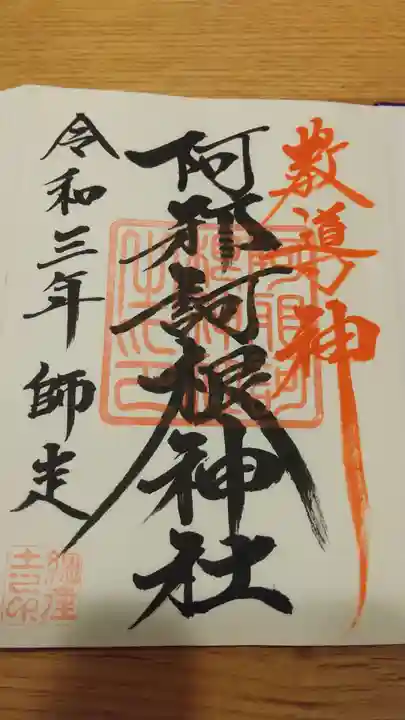 教導神
阿邪訶根神社
令和三年師走